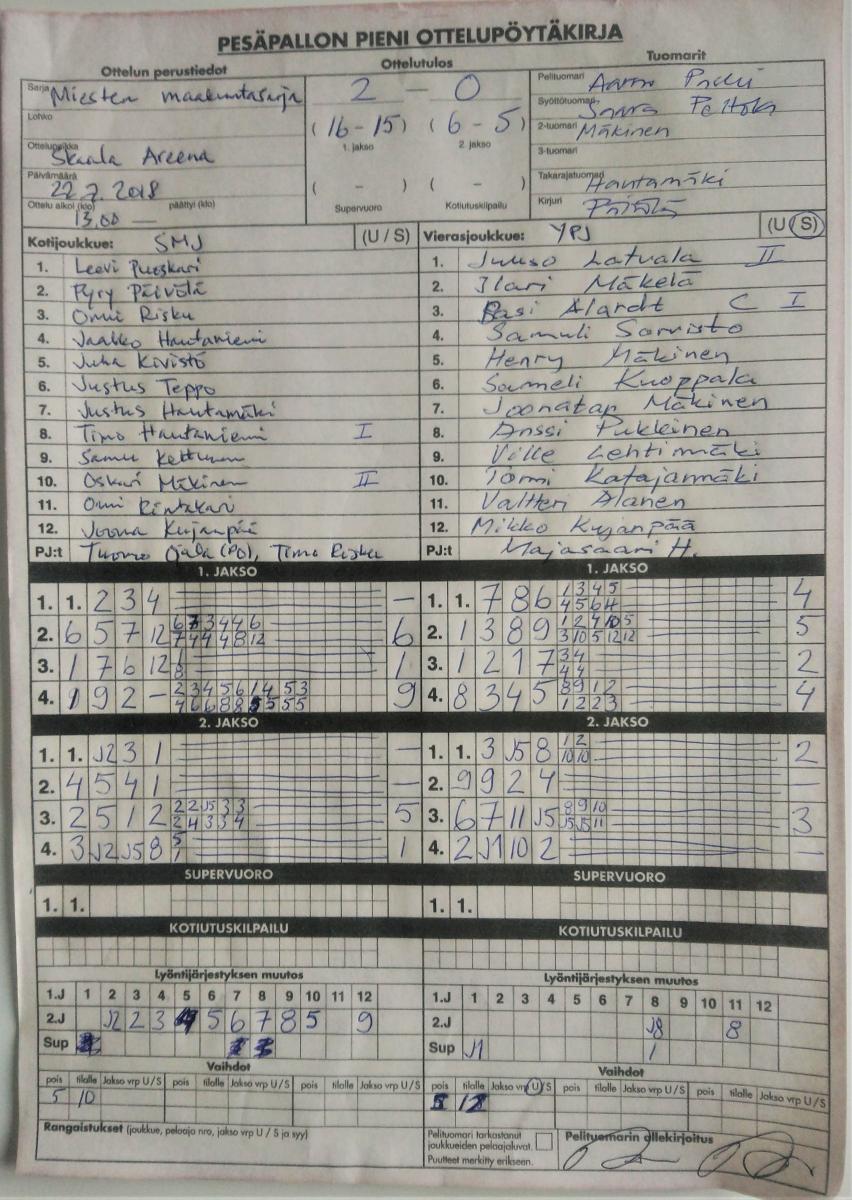 PESÄPALLON PIENI OTTELUPÖYTÄKIRJA
Ottelun perustiedot Ottelutulos Tuomarit
Sarja Miesten maakuntasarja 2 – 0 Pelituomari
Lohko (16 - 15) (6 - 5) Syöttötuomari
1. jakso 2. jakso 2-tuomari Mäkinen
Ottelupaikka Skaala Areena 3-tuomari
Päivämäärä 22.7.2018 ( - ) ( - ) Takarajatuomari Hautamäki
Ottelu alkoi (klo) 13,00 — päättyi (klo) Supervuoro Kotiutuskilpailu Kirjuri
Kotijoukkue: SMJ (U / S) Vierasjoukkue: YPJ (U / S)
1. Leevi Pueskari 1. Juuso Latvala II
2. Pyry Päivölä 2. Ilari Mäkelä
3. Omni Risku 3. Pasi Alardt C I
4. Jaakko Hautaniemi 4. Samuli Sorvisto
5. Juha Kivistö 5. Henry Mäkinen
6. Justus Teppo 6. Sameli Kuoppala
7. Justus Hautamäki 7. Joonatan Mäkinen
8. Timo Hautaniemi I 8. Anssi Pukkinen
9. Samu Kettunen 9. Ville Lehtimäki
10. Oskari Mäkinen II 10. Tomi Katajanmäki
11. Omni Rintakari 11. Valtteri Alanen
12. Joona Kujanpää 12. Mikko Kujanpää
PJ:t Tuomo Ojala (PO), Timo Risku PJ:t Majasaari H.
1. JAKSO 1. JAKSO
1. 1. 2 3 4 – 1. 1. 7 8 6 1 3 4 5 4
4 5 6 4
2. 6 5 7 12 6 7 3 4 4 6 6 2. 1 3 8 9 1 2 4 10 5 5
7 4 4 4 8 12 3 10 5 12 12
3. 1 7 6 12 1 3. 1 2 1 7 3 4 2
4 4
4. 1 9 2 – 2 3 4 5 6 1 4 5 3 9 4. 8 3 4 5 8 9 1 2 4
4 6 6 8 8 5 5 5 5 1 2 2 3
2. JAKSO 2. JAKSO
1. 1. J2 3 1 – 1. 1. 3 J5 8 1 2 2
10 10
2. 4 5 4 1 – 2. 9 9 2 4 –
3. 2 5 1 2 2 2 J5 3 3 5 3. 6 7 11 J5 8 9 10 3
2 4 3 3 4 J5 J5 11
4. 3 J2 J5 8 5 1 4. 2 J1 10 2 –
1
SUPERVUORO SUPERVUORO
1. 1. 1. 1.
KOTIUTUSKILPAILU KOTIUTUSKILPAILU
Lyöntijärjestyksen muutos Lyöntijärjestyksen muutos
1.J 1 2 3 4 5 6 7 8 9 10 11 12 1.J 1 2 3 4 5 6 7 8 9 10 11 12
2.J J2 2 3 4 5 6 7 8 5 9 2.J J8 8
Sup Sup J1 1
Vaihdot Vaihdot
pois tilalle Jakso vrp U / S pois tilalle Jakso vrp U / S pois tilalle Jakso vrp U / S pois tilalle Jakso vrp U / S pois tilalle Jakso vrp U / S pois tilalle Jakso vrp U / S
5 10
Rangaistukset (joukkue, pelaaja nro, jakso vrp U / S ja syy) Pelituomari tarkastanut joukkueiden pelaajaluvat. Pelituomarin allekirjoitus
Puutteet merkitty erikseen.